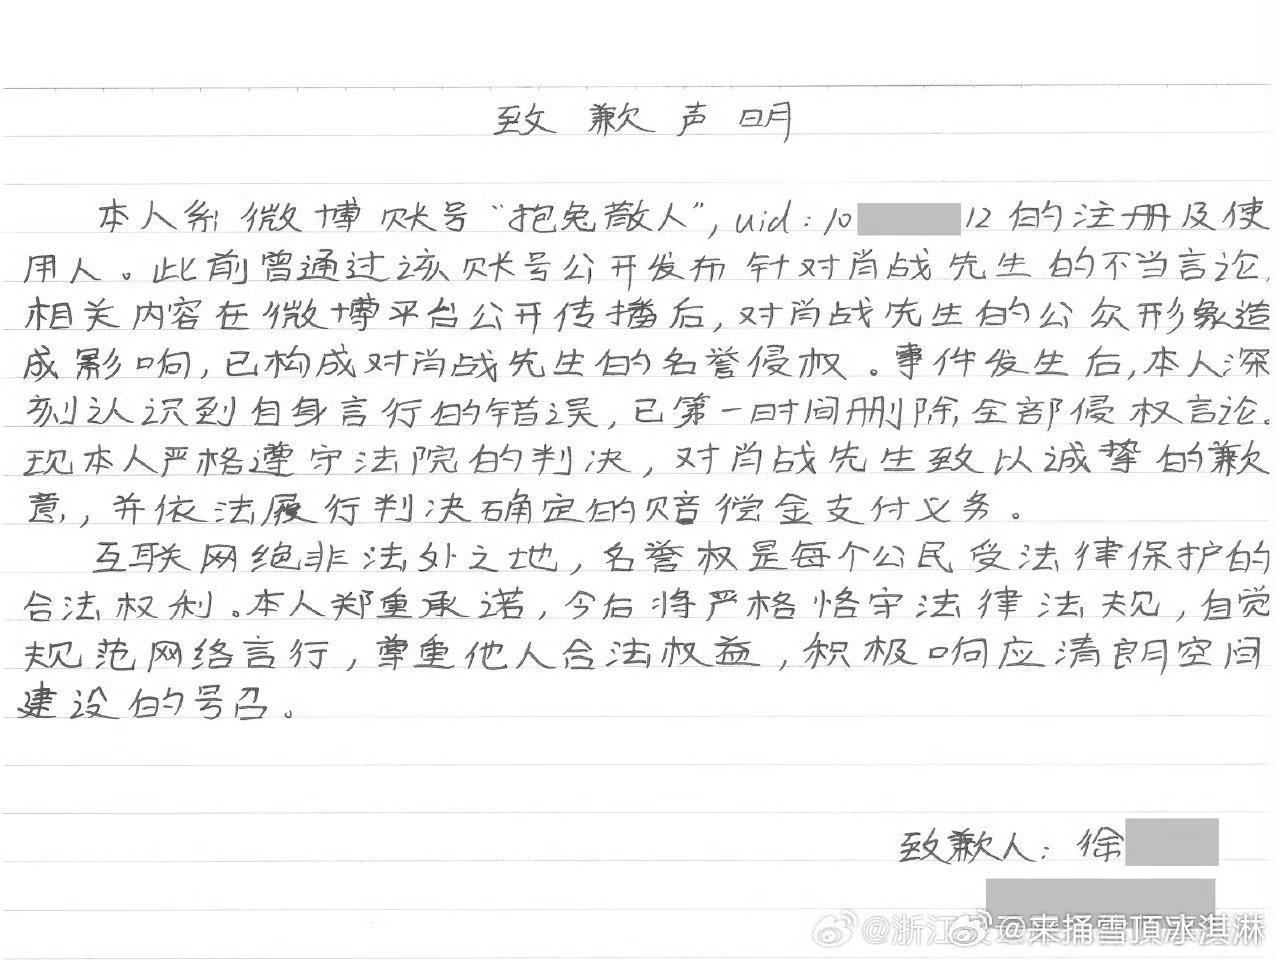 致歉声明
本人系微博账号“抱兔散人”,uid:10 12的注册及使
用人。此前曾通过该账号公开发布针对肖战先生的不当言论,
相关内容在微博平台公开传播后,对肖战先生的公众形象造
成影响,已构成对肖战先生的名誉侵权。事件发生后,本人深
刻认识到自身言行的错误,已第一时间删除全部侵权言论。
现本人严格遵守法院的判决,对肖战先生致以诚挚的歉
意,并依法履行判决确定的赔偿金支付义务。
互联网绝非法外之地,名誉权是每个公民受法律保护的
合法权利。本人郑重承诺,今后将严格恪守法律法规,自觉
规范网络言行,尊重他人合法权益,积极响应清朗空间
建设的号召。
致歉人:徐
@浙江
@来捅雪頂冰淇淋